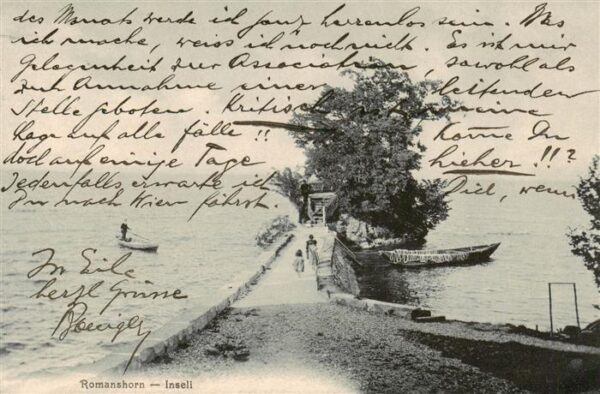 des Monats werde ich ganz herrenlos sein. Was
ich mache, weiss ich noch nicht. Es ist mir
Gelegenheit zur Association, sowohl als
zur Annahme einer leitenden
Stelle geboten. Kritisch ist meine
Lage auf alle Fälle!! Käme Du
doch auf einige Tage hieher!!?
Jedenfalls erwarte ich Dich, wenn
Du nach Wien fährst.
In Eile
herzl Grüsse
Romanshorn — Inseli